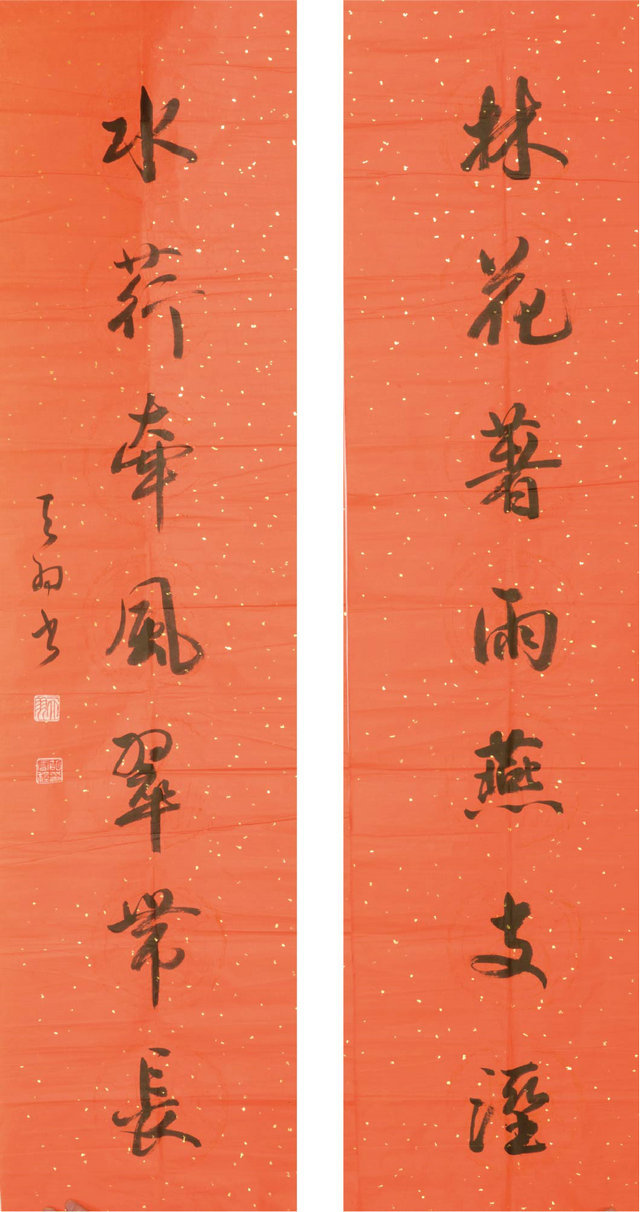 林花著雨燕支溼
水荇牽風翠帶長